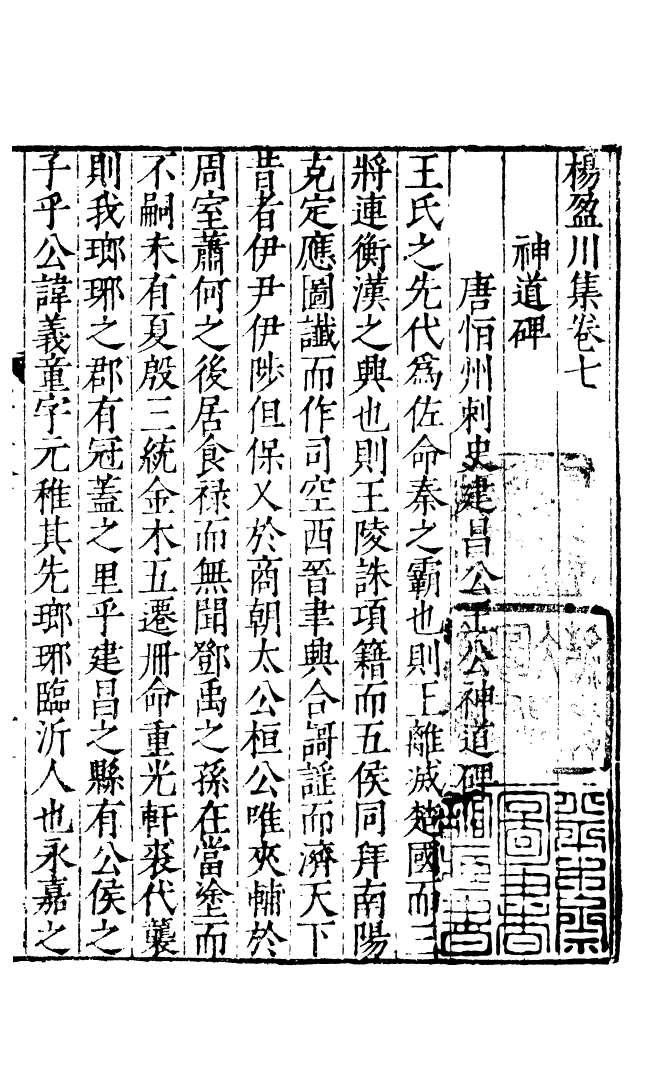 楊盈川集卷七
神道碑
唐恒州刺史建昌公王公神道碑
王氏之先代爲佐命秦之霸也則王離滅楚國而三
將連衡漢之興也則王陵誅項籍而五侯同拜南陽
克定應圖讖而作司空西晉聿興合謌謡而濟天下
昔者伊尹伊陟但保乂於商朝太公桓公唯夾輔於
周室蕭何之後居食禄而無聞鄧禹之孫在當塗而
不嗣未有夏殷三統金木五遷册命重光軒裘代襲
則我瑯琊之郡有冠蓋之里乎建昌之縣有公侯之
子乎公諱義童字元稚其先瑯琊臨沂人也永嘉之